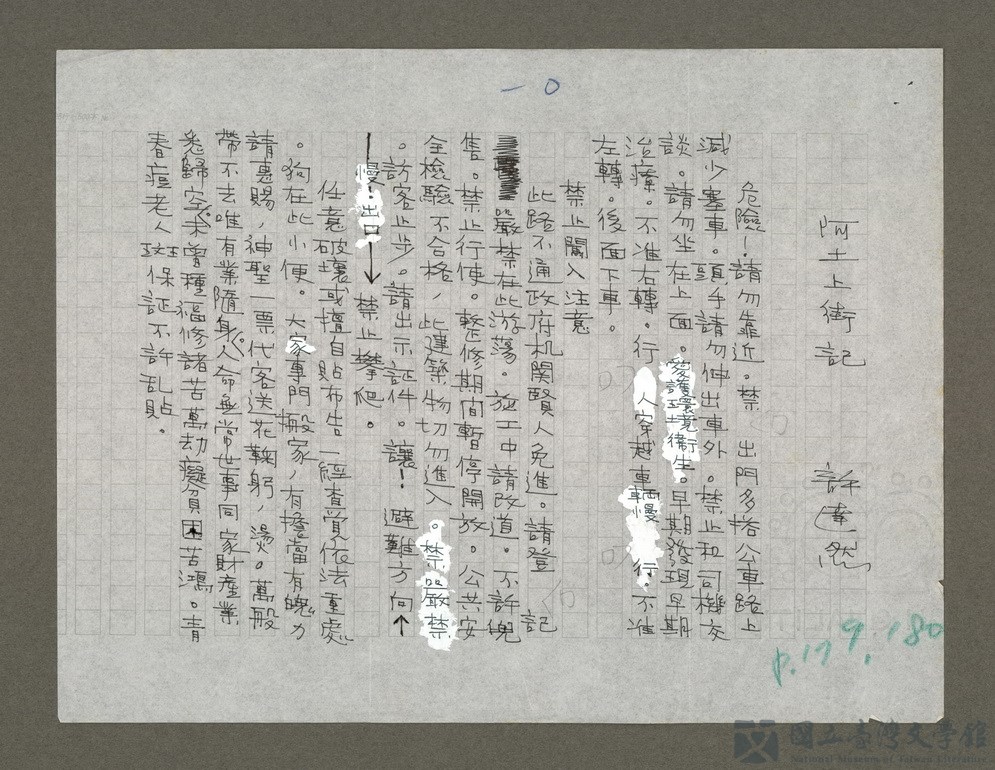 一0
阿土上街記
許達然
危險！請勿靠近。禁 出門多搭公車路上
減少塞車。頭手請勿伸出車外。禁止和司機交
談。請勿坐在上面。愛護環境衛生。早期發現早期
治療。不准右轉。行人穿越車輛慢行。不准
左轉。後面下車。
禁止闖入注意
此路不通政府机関賢人免進。請登 記
嚴禁在此游蕩。施工中請改道。不許
售。禁止行使。整修期间暫停開放。公共安
全檢驗不合格，此建築物切勿進入。禁嚴禁
。訪客止步。請出示証件。讓！避難方向↑
慢．出口→ 禁止攀爬。
任意破壞或擅自貼布告一經查覺依法重處
。狗在此小便。大家專門搬家，有擔當有魄力
請惠賜，神聖一票代客送花鞠躬，燙。萬般
帶不去唯有業隨身。人命無常世事同家財產業
悉歸空。未曾種福修諸苦萬劫癡貧困苦鴻。青
春痘老人 保証不許乱貼。
p.179.180
國立臺灣文學館
National Museum of Taiwan Literature